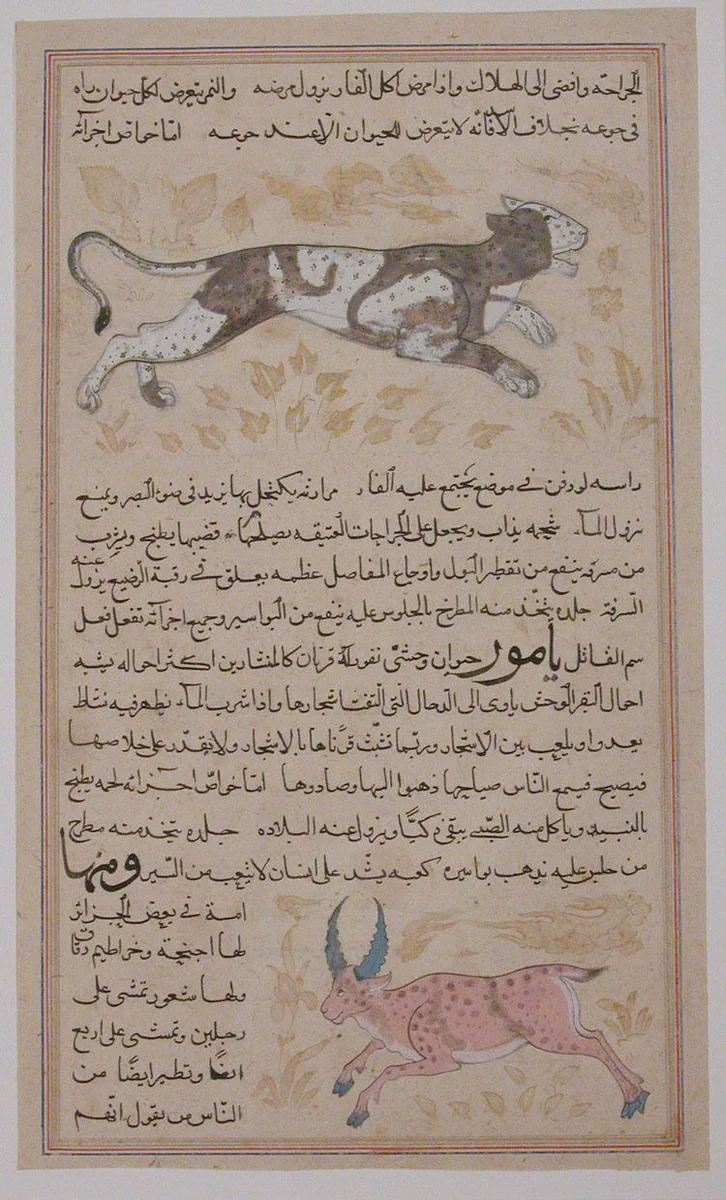 الجراحة وافضى الى الهلاك واذا مرض اكل الفار يزول مرضه والنمر يتعرض لكل حيوان راه
فى جوعه بخلاف الاسد فانه لا يتعرض للحيوان الا عند جوعه اما خواص اجزائه
راسه لو دفن فى موضع يجتمع عليه الفار مرارته يكتحل بها يزيد فى ضوء البصر ويمنع
نزول الماء شحمه يذاب ويجعل على الجراحات العتيقه يصلحها قضيبها يطبخ ويشرب
من مرقه ينفع من تقطير البول واوجاع المفاصل عظمه يعلق فى رقبة الرضيع يزول عنه
السرفة جلده يتخذ منه المطرح بالجلوس عليه ينفع من البواسير وجميع اجزائه تفعل فعل
سم القاتل يامور حيوان وحشى نفور له قرنان كالمنشارين اكثر احواله يشبه
احوال البقر الوحش ياوى الى الدحال التى التفت اشجارها واذا شرب الماء يظهر فيه نشاط
يعدو او يلعب بين الاشجار وربما تثبت قرناها بالاشجار ولا يقدر على خلاصها
فيصيح فيسمع الناس صياحها ذهبوا اليها وصادوها اما خواص اجزائه لحمه يطبخ
بالنبيذ وياكل منه الصبى يبقى ذكيا ويزول عنه البلاده جلده يتخذ منه مطرح
من جلس عليه يذهب بواسيره كعبه يشد على انسان لا يتعب من السير ومنها
امة فى بعض الجزائر
لها اجنحة وخراطيم دقاق
ولها شعور تمشى على
رجلين وتمشى على اربع
ايضا وتطير ايضا من
الناس من يقول انهم